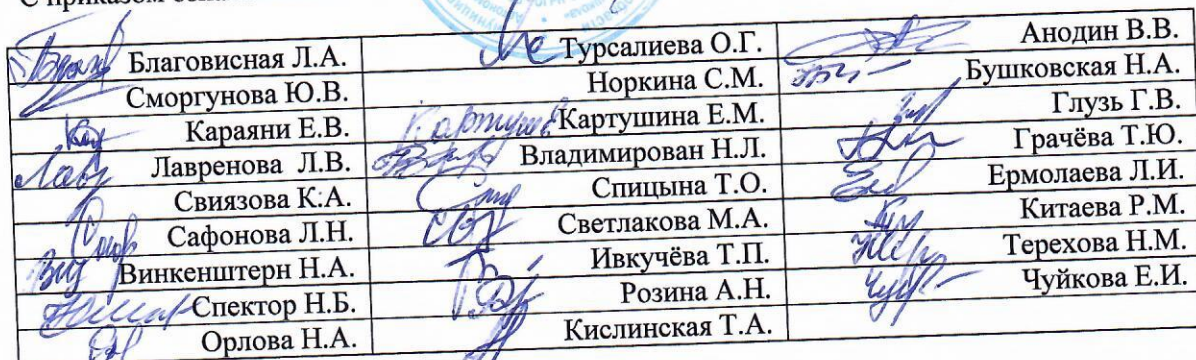 С приказом озна
Благовисная Л.А. Турсалиева О.Г. Анодин В.В.
Сморгунова Ю.В. Норкина С.М. Бушковская Н.А.
Караяни Е.В. Картушина Е.М. Глузь Г.В.
Лавренова Л.В. Владимирован Н.Л. Грачёва Т.Ю.
Свиязова К.А. Спицына Т.О. Ермолаева Л.И.
Сафонова Л.Н. Светлакова М.А. Китаева Р.М.
Винкенштерн Н.А. Ивкучёва Т.П. Терехова Н.М.
Спектор Н.Б. Розина А.Н. Чуйкова Е.И.
Орлова Н.А. Кислинская Т.А.